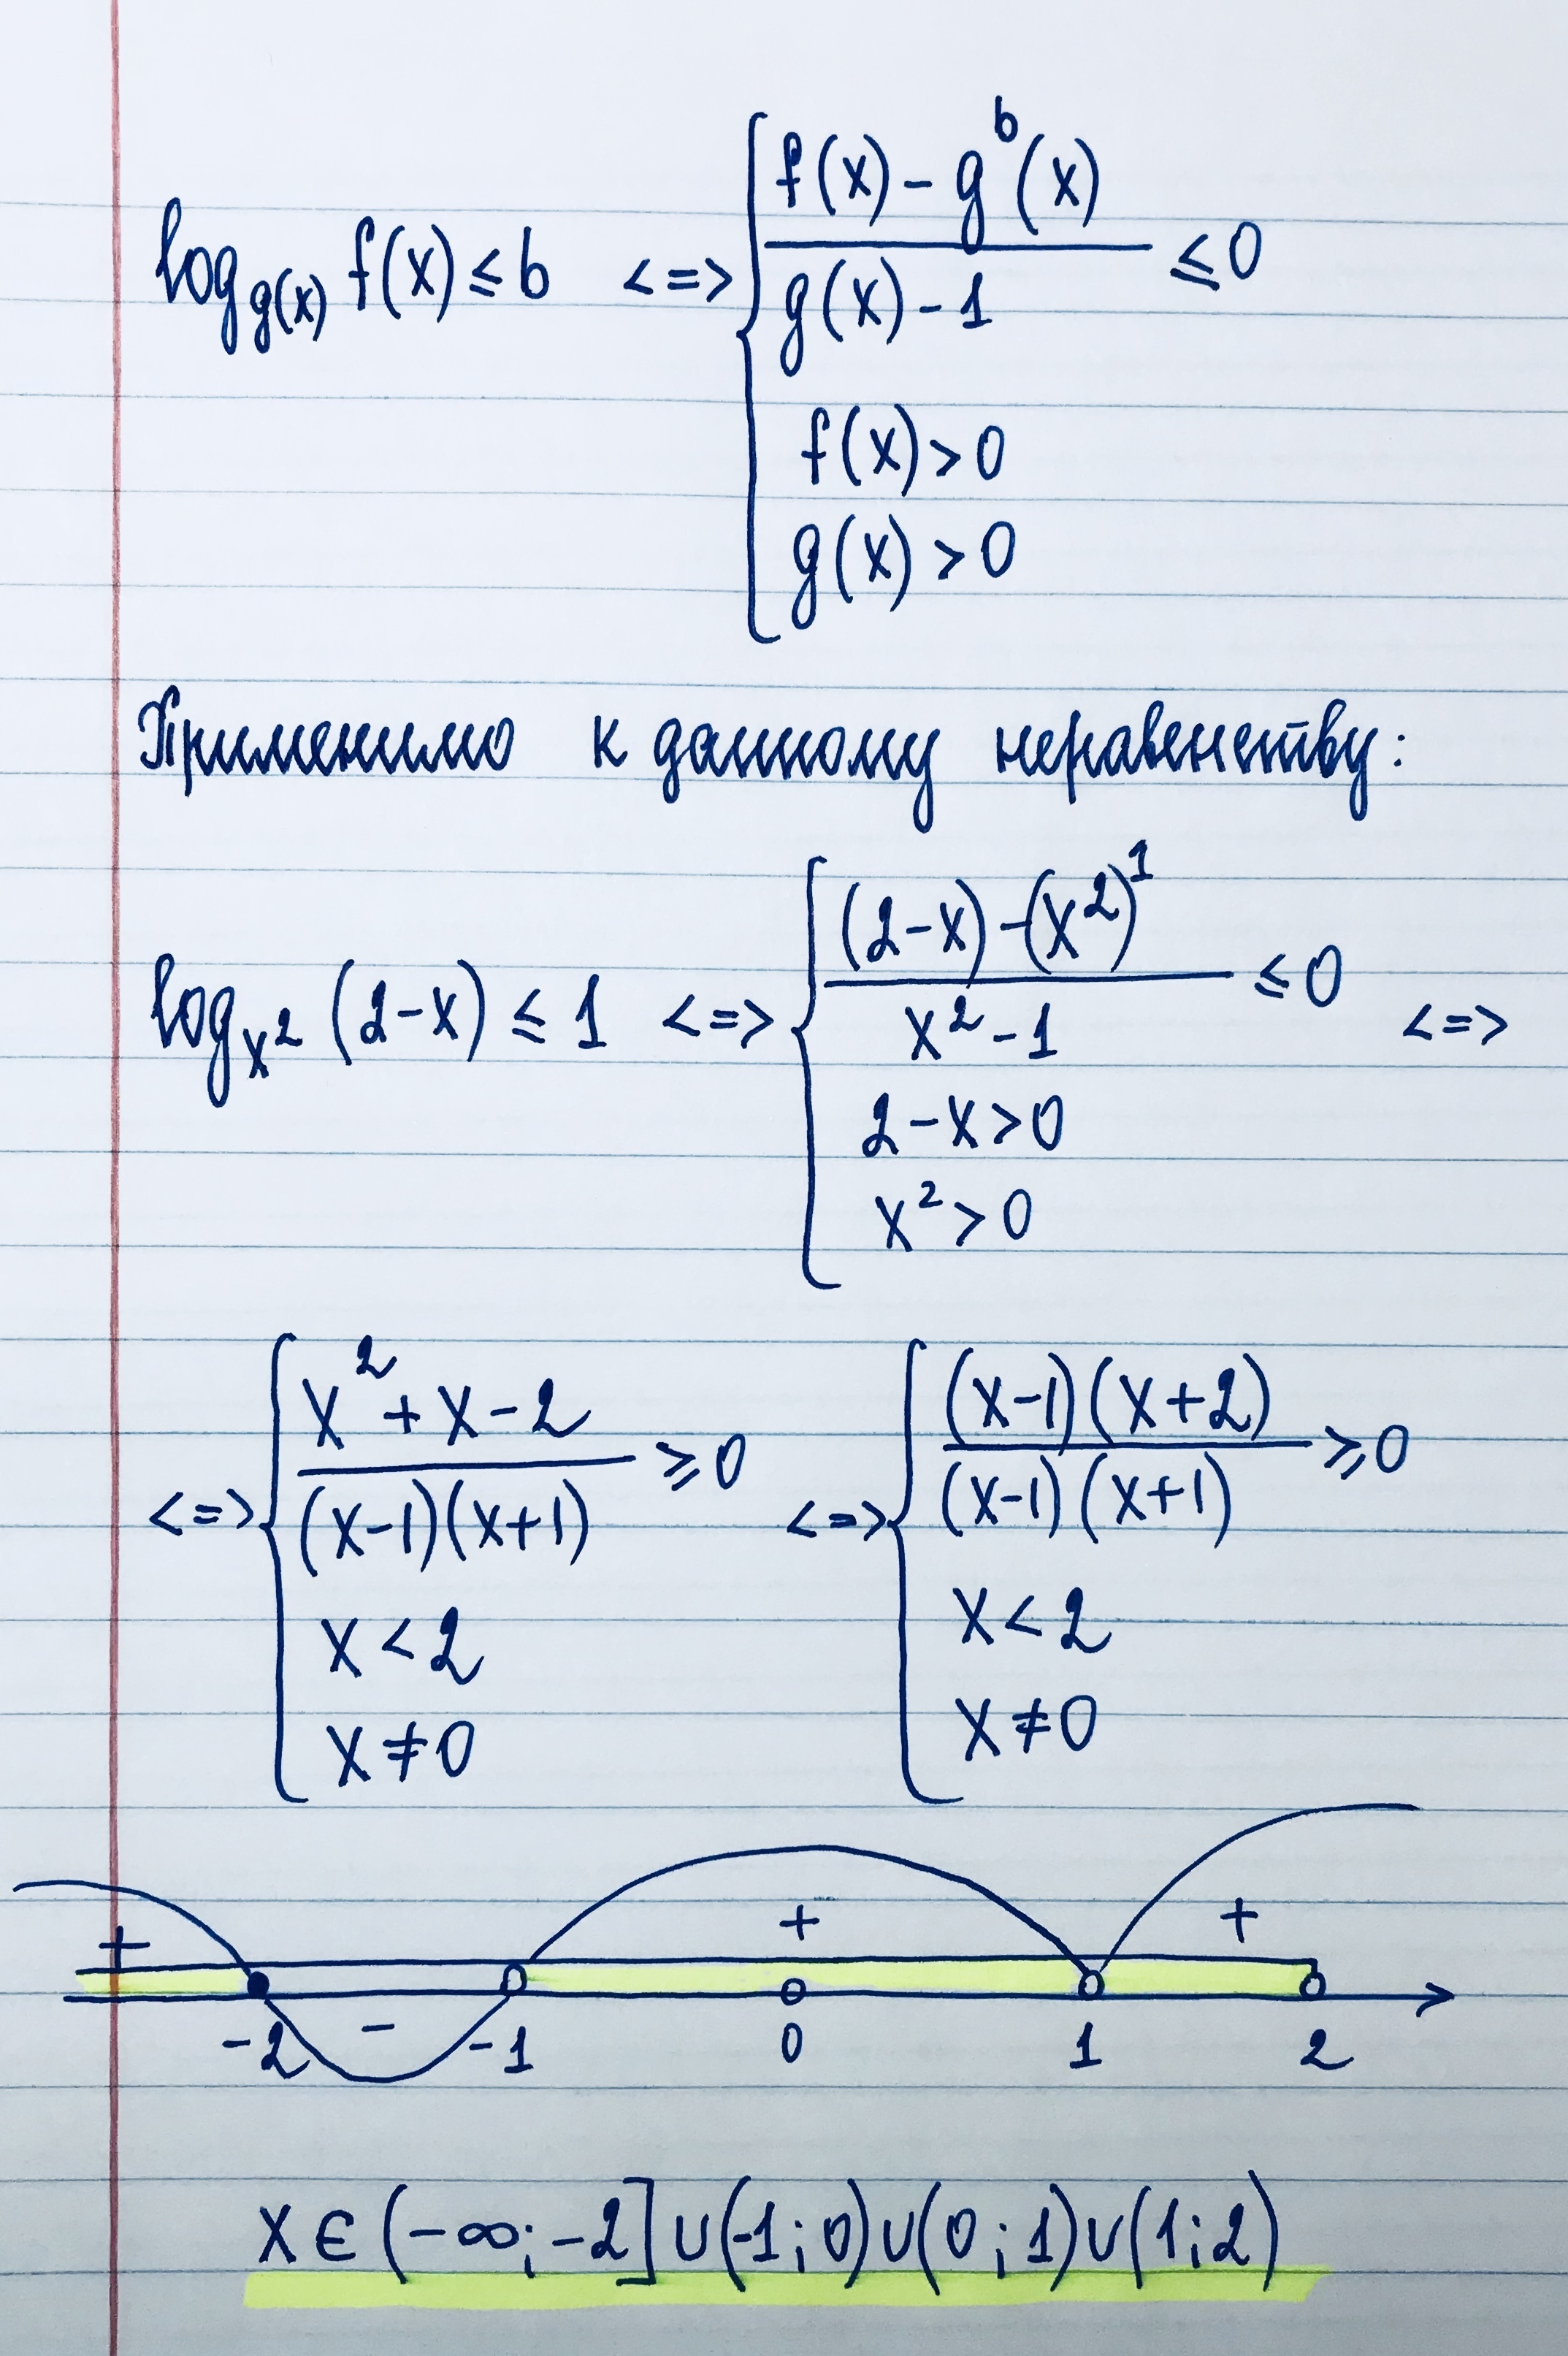 log_{g(x)} f(x) ≤ b <=> { (f(x) - g^b(x)) / (g(x) - 1) ≤ 0
f(x) > 0
g(x) > 0
Применимо к данному неравенству:
log_{x^2} (2-x) ≤ 1 <=> { ((2-x) - (x^2)^1) / (x^2 - 1) ≤ 0 <=>
2-x>0
x^2 > 0
<=> { (x^2 + x - 2) / ((x-1)(x+1)) ≥ 0 <=> { ((x-1)(x+2)) / ((x-1)(x+1)) ≥ 0
x < 2 x < 2
x ≠ 0 x ≠ 0
+ - + +
-2 -1 0 1 2
x ∈ (-∞; -2] ∪ (-1; 0) ∪ (0; 1) ∪ (1; 2)